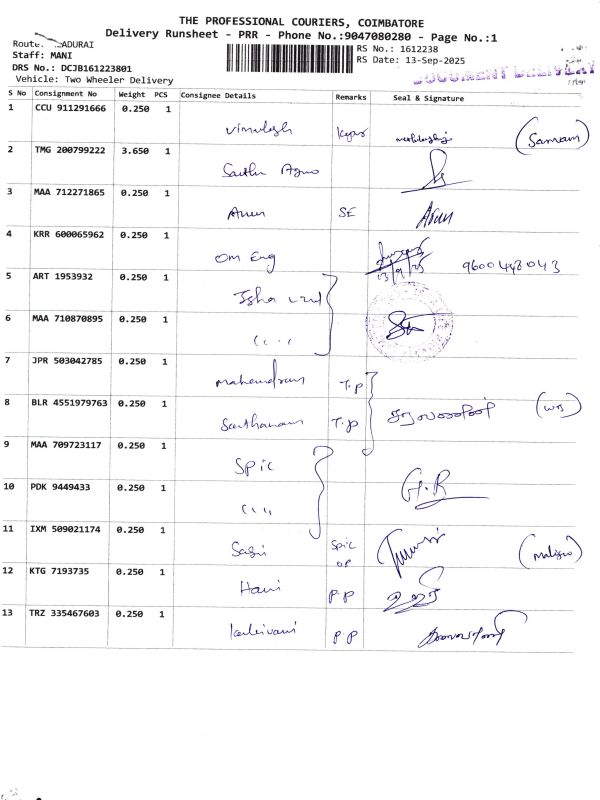 THE PROFESSIONAL COURIERS, COIMBATORE
Delivery Runsheet - PRR - Phone No.:9047080280 - Page No.:1
Route. ADURAI
RS No.: 1612238
Staff: MANI
RS Date: 13-Sep-2025
DRS No.: DCJB161223801
DOCUMENT DELIVERY
Vehicle: Two Wheeler Delivery
S No Consignment No Weight PCS Consignee Details Remarks Seal & Signature
1 CCU 911291666 0.250 1
Vimalesh
2 TMG 200799222 3.650 1
3 MAA 712271865 0.250 1
Arun SE Arun
4 KRR 600065962 0.250 1
Om Eng 13/9/25 9600448043
5 ART 1953932 0.250 1
Isha
6 MAA 710870895 0.250 1
7 JPR 503042785 0.250 1
Mahendran T.P
8 BLR 4551979763 0.250 1
Santhanam T.P
9 MAA 709723117 0.250 1
Spic
10 PDK 9449433 0.250 1
G.R
11 IXM 509021174 0.250 1
Spic
12 KTG 7193735 0.250 1
P.P
13 TRZ 335467603 0.250 1
P P